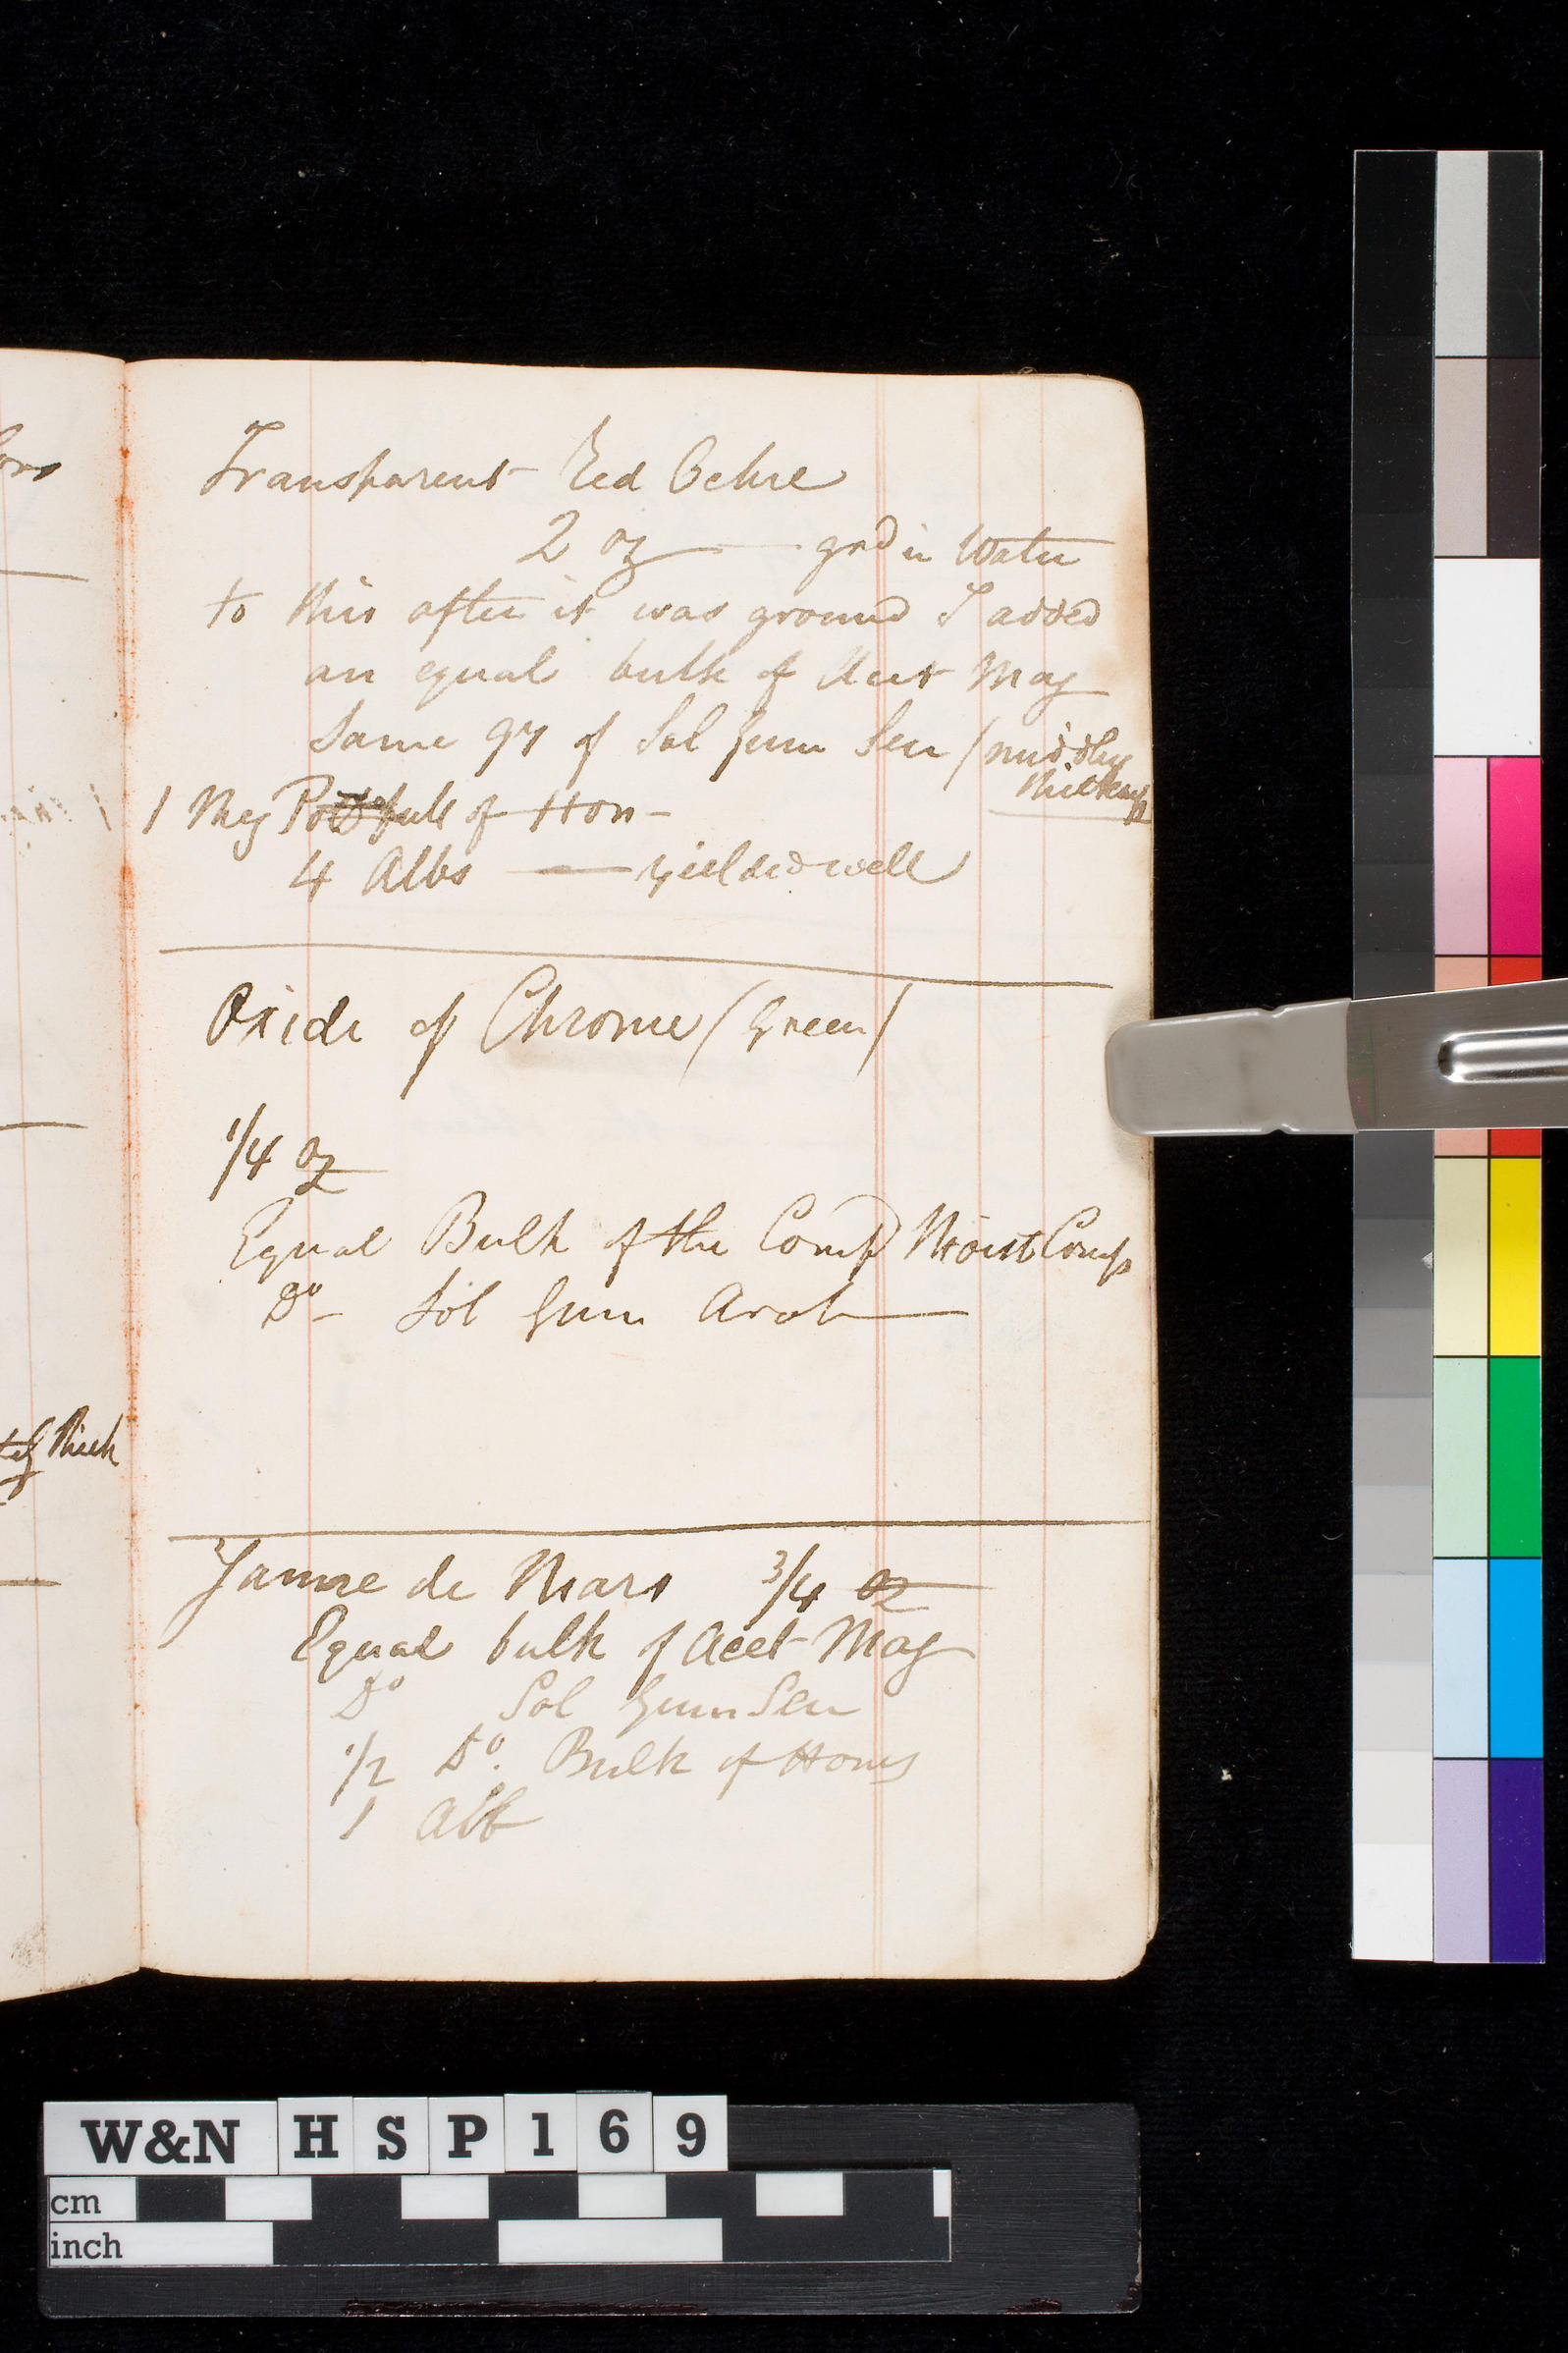 Transparent Red Ochre
2 oz — grd in Water
to this after it was ground I added
an equal bulk of Acet Mag
Same qy of Sol Gum Sen (middlg
thickness
1 Meg Pot full of Hon -
4 Albs — yielded well
Oxide of Chrome (Green)
1/4 oz
Equal Bulk of the Compd Moist Comp
Do - Sol Gum Arab
thick
Jaune de Mars 3/4 oz
Equal bulk of Acet Mag
Do Sol Gum Sen
1/2 Do. Bulk of Hony
1 Alb
W&N HSP169
cm
inch